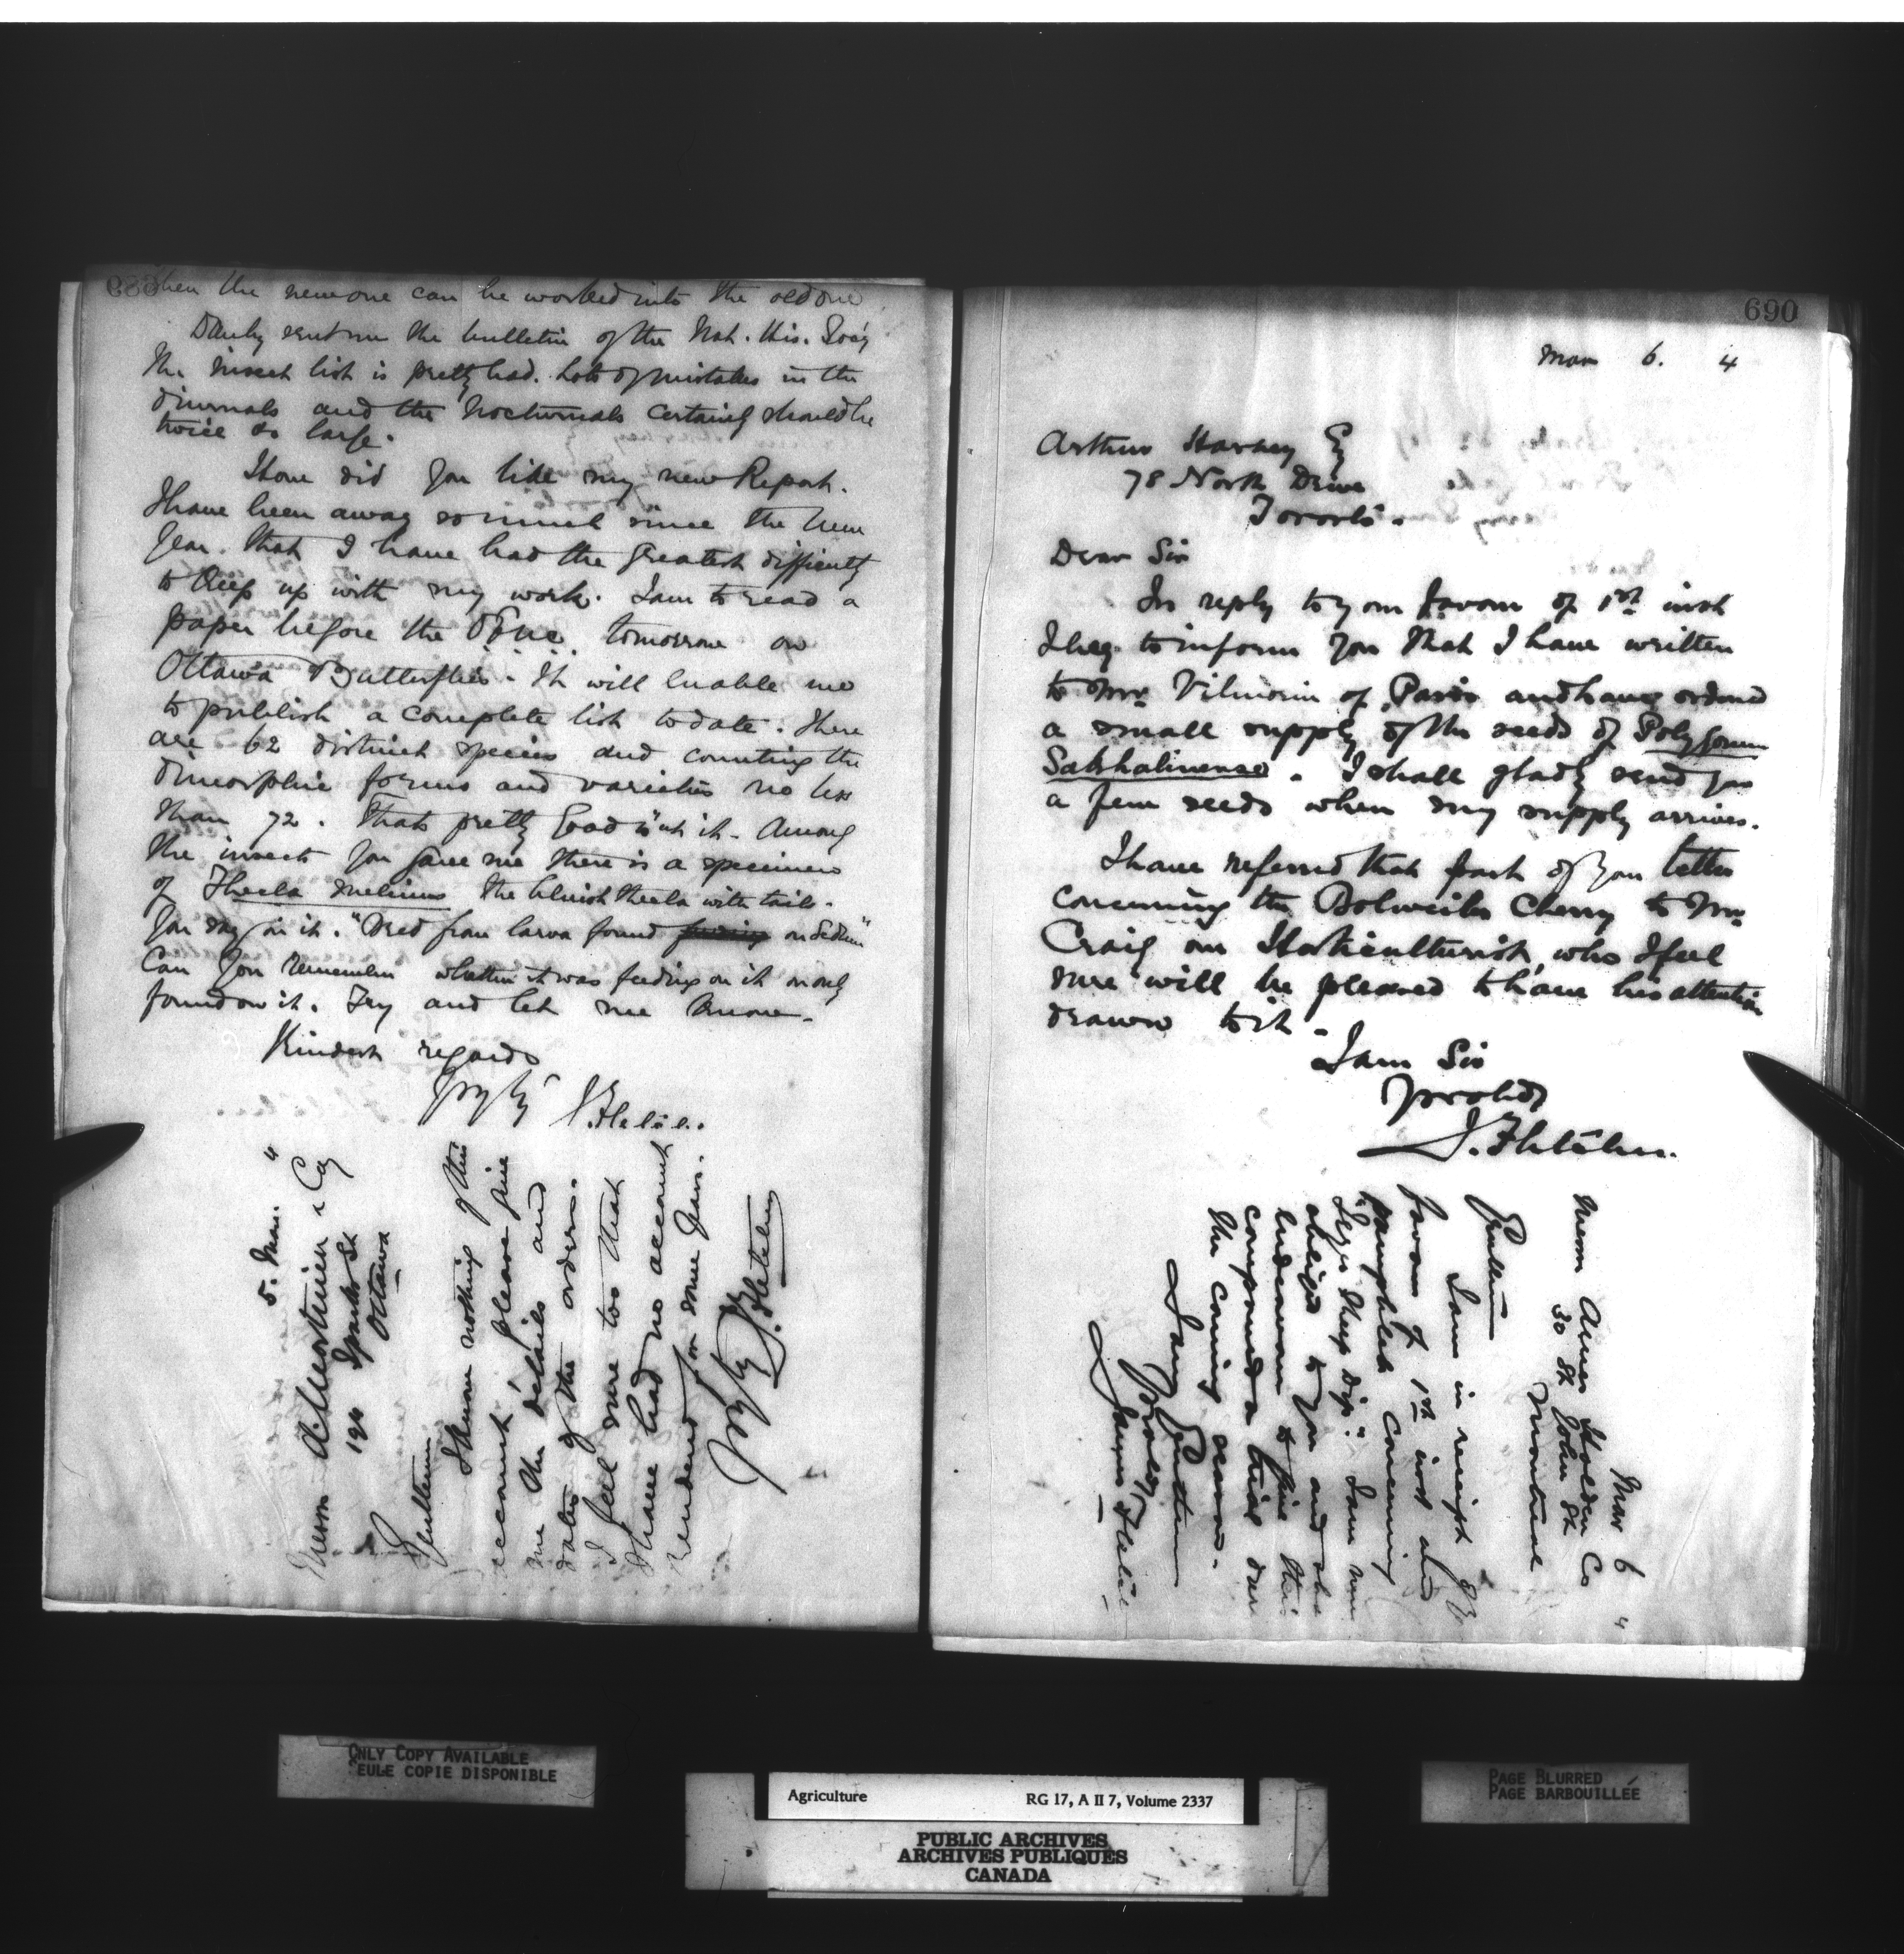 689
When the new one can be worked into the old one
Danby sent me the bulletin of the Nat. His. Soc'y
The insect list is pretty bad. Lots of mistakes in the
diurnals and the Nocturnals certainly should be
twice as large.
How did you like my new Report.
I have been away so much since the New
Year. that I have had the greatest difficulty
to keep up with my work. I am to read a
paper before the tomorrow on
Ottawa Butterflies. It will enable me
to publish a complete list to date. There
are 62 distinct species and counting the
dimorphic forms and varieties no less
than 72. Thats pretty Good isn't it. Among
the insects you gave me there is a specimen
of Thecla melinus the bluish thecla with tails.
You say on it. "Bred from larva found feeding on Sedum"
Can you remember whether it was feeding on it or only
found on it. Try and let me know.
Kindest regards
J. Fletcher.
5. Mar. 4
Messrs & Co
194 Sparks St
Ottawa
Gentlemen
I know nothing of this
account, please give
me the details and
dates of the orders.
I feel sure too that
I have had no account
rendered for some years.
J. Fletcher
690
Mar 6. 4
Arthur Harvey Esq
78 North Drive
Toronto.
Dear Sir
In reply to your favour of 1st inst
I beg to inform you that I have written
to Mr Vilmorin of Paris and have ordered
a small supply of the seeds of Polygonum
Sakhalinense. I shall gladly send you
a few seeds when my supply arrives.
I have referred that part of your letter
concerning the Bolweiler Cherry to Mr
Craig our Horticulturist, who I feel
sure will be pleased to have his attention
drawn to it.
I am Sir
Yr obdt
J. Fletcher.
Mar 6 4
Messrs Ames Holden Co
30 St John St
Montreal
Gentlemen
I am in receipt of yr
favour of 1st inst and
pamphlet concerning
Sheep Dip". I am much
obliged to you and shall
endeavour to give this
compound a trial during
the coming season.
I am Gentlemen
Yr obdt
James Fletcher
ONLY COPY AVAILABLE
SEULE COPIE DISPONIBLE
PAGE BLURRED
PAGE BARBOUILLÉE
Agriculture RG 17, A II 7, Volume 2337
PUBLIC ARCHIVES
ARCHIVES PUBLIQUES
CANADA